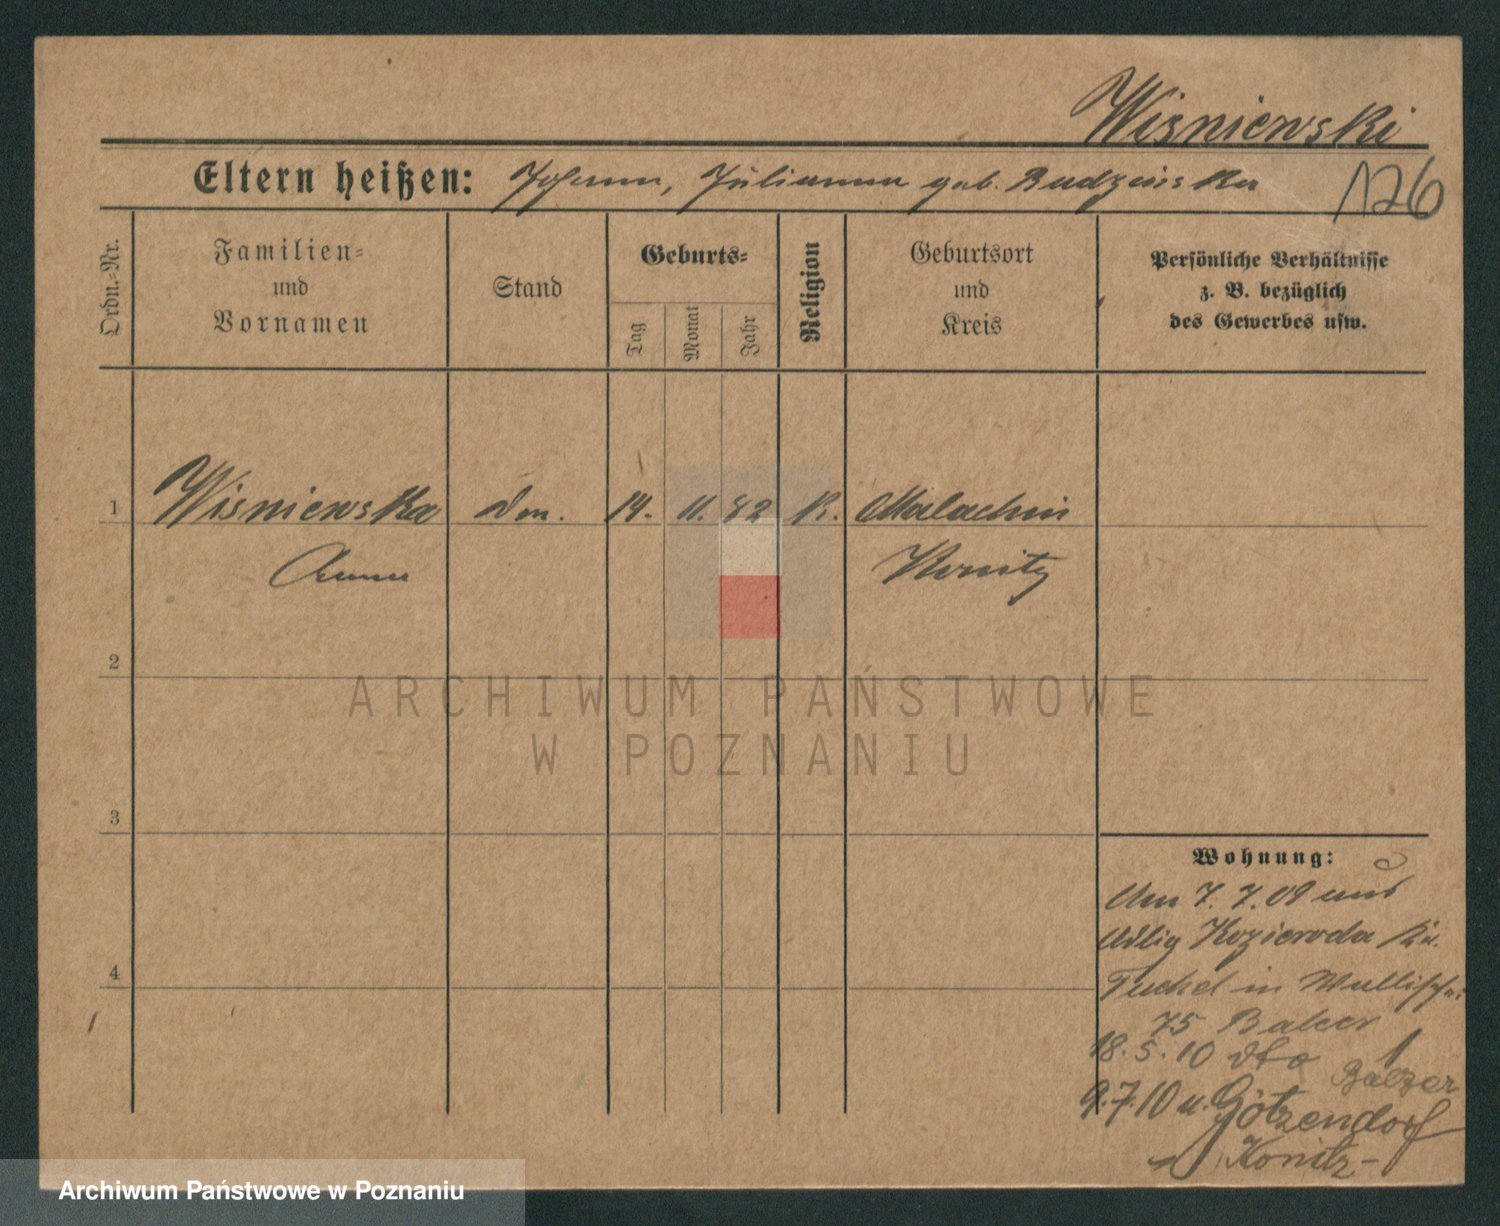 Wisniewski
Eltern heißen: Johann, Julianna geb. Budzinska
126
Ordn.-Nr.
Familien-
und
Vornamen
Stand
Geburts-
Tag
Monat
Jahr
Religion
Geburtsort
und
Kreis
Persönliche Verhältnisse
z. B. bezüglich
des Gewerbes usw.
1 Wisniewska Dm. 14. 11. 82 K. Malachin
Anna Konitz
2
ARCHIWUM PAŃSTWOWE
W POZNANIU
3
4
Wohnung:
Am 7. 7. 09 aus
Adlig Kozierada Kr.
Tuchel in Wallisch.
75
18. 5. 10 dto Balzer
9.7.10 n. Götzendorf
Konitz
Archiwum Państwowe w Poznaniu